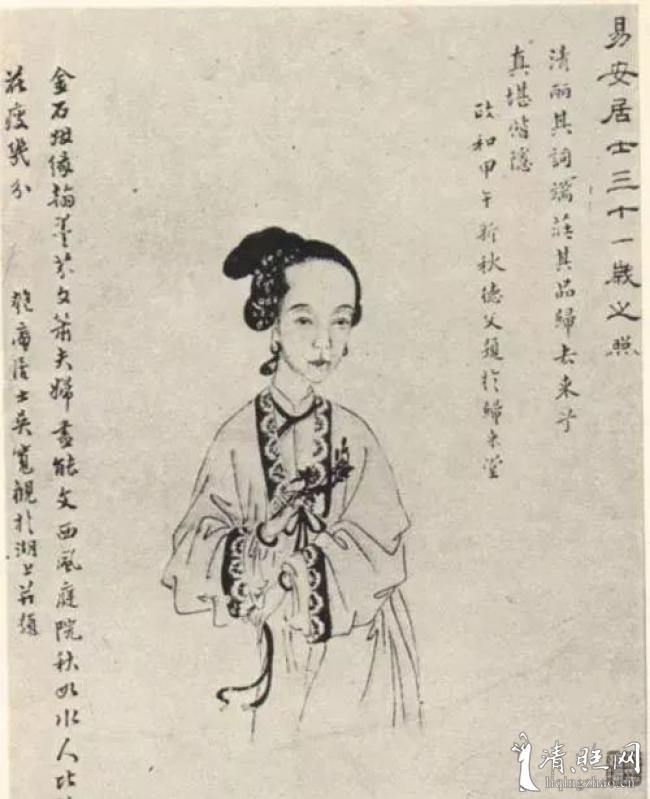 易安居士三十一歲之照
清丽其詞端莊其品歸去来兮
真堪偕隱
政和甲午新秋德父題於歸来堂
金石姻緣翰墨芬文簫夫婦盡能文西風庭院秋如水人比
花瘦幾分
匏庵居士吳寬觀於湖上并題
清照网
liqingzhao.cn